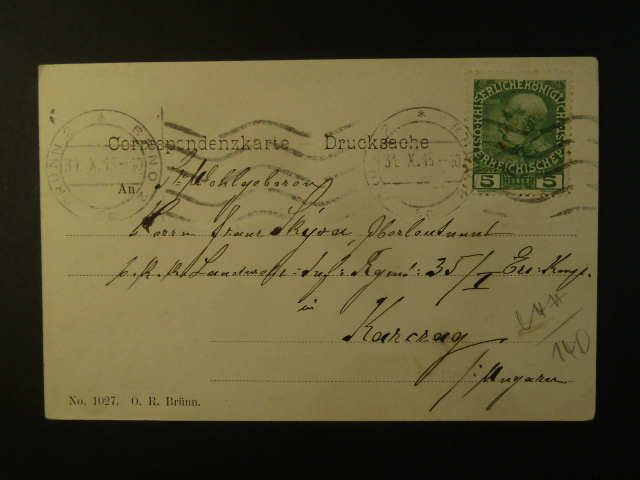 BRÜNN 2 * BRNO 2
31. X. 15
31. X. 15
KAISERLICHE KÖNIGLICHE
ÖSTERREICHISCHE POST
5 HELLER 5
Correspondenzkarte Drucksache
An
Wohlgeboren
Herrn Franz Skýva, Oberleutnant
k. k. Landwehr-Inf: Rgmt: 35/I Ers: Komp.
in
Karczag
Ungarn
140
No. 1027. O. R. Brünn.